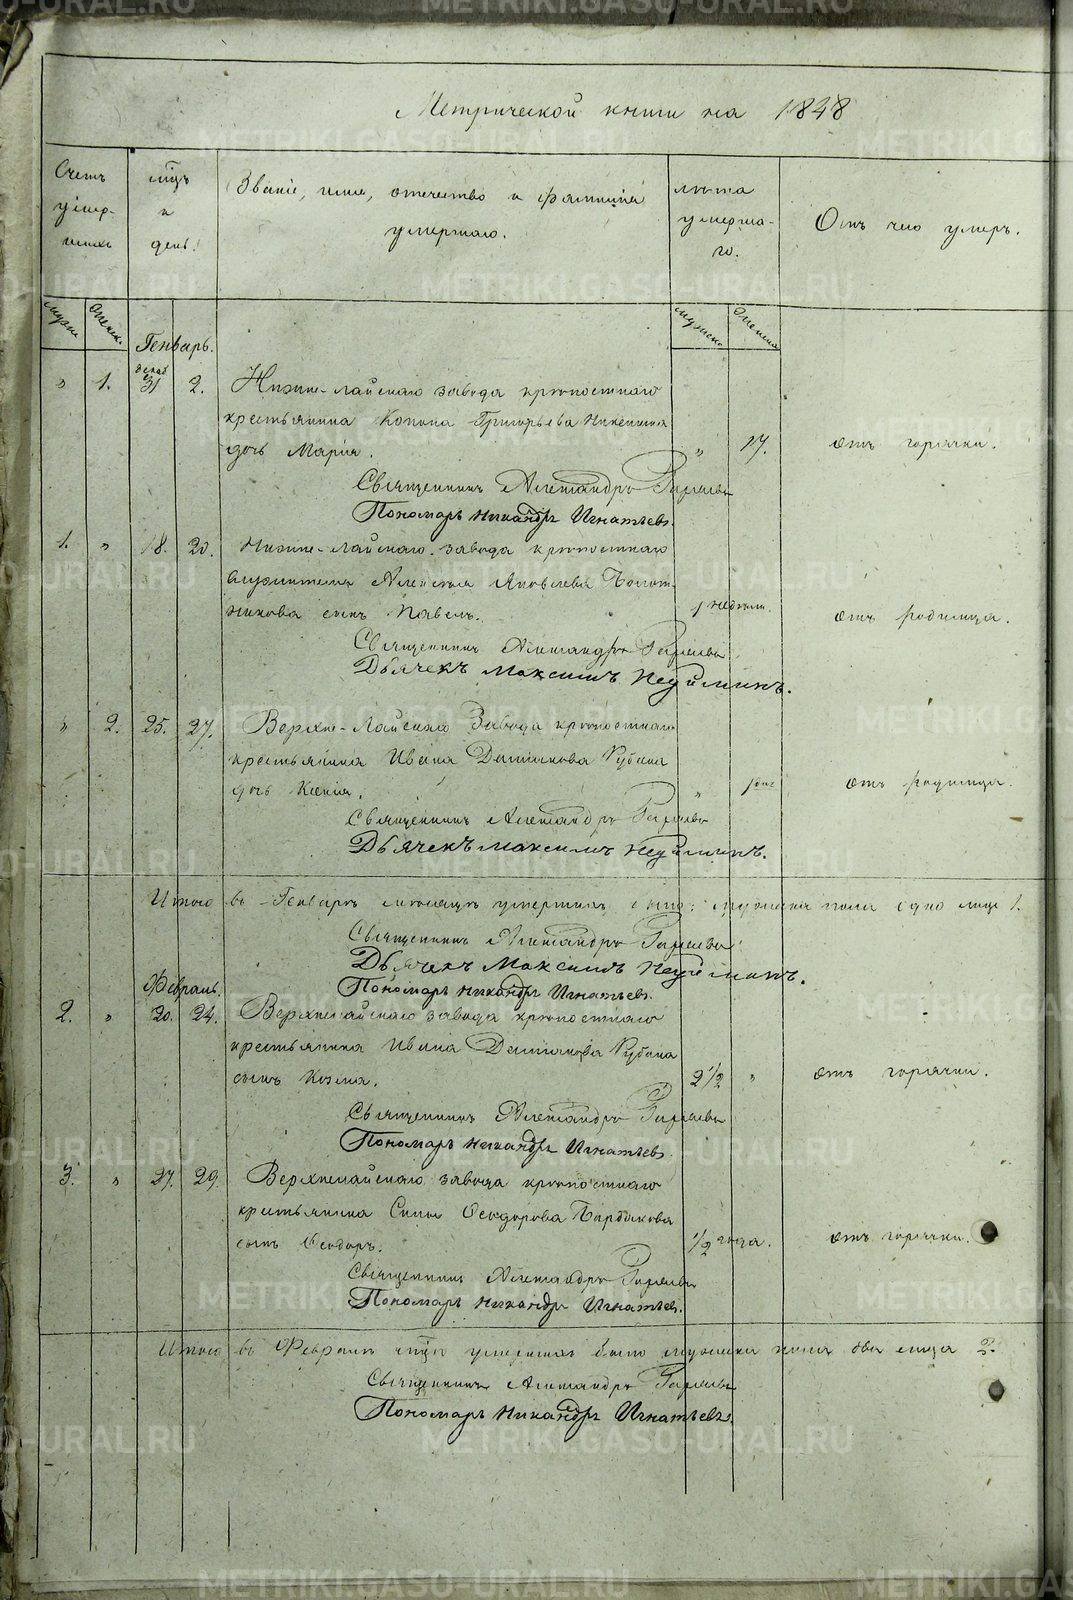 Метрической книги на 1848
Счетъ умер-шихъ
мѣсяцъ и день.
Званіе, имя, отечество и фамилія умершаго.
лѣта умерша-го.
Отъ чего умеръ.
мужск.
женск.
Генварь.
мужска
женска
" 1. декаб 31 2. Нижне-лайскаго завода крѣпостнаго
крестьянина Конона Григорьева Никонова
дочь Марія. " 17. отъ горячки.
Священникъ Александръ
Пономарь Никандръ Игнатьевъ.
1. " 18. 20. Нижне-лайскаго завода крѣпостнаго
служителя Алексѣя Яковлева
сынъ Павелъ. 1 недѣли. отъ родимца.
Священникъ Александръ
Дьячекъ Максимъ Неуйминъ.
" 2. 25. 27. Верхне-Лайскаго Завода крѣпостнаго
крестьянина Ивана Даміанова
дочь Ксенія. " 1 отъ родимца.
Священникъ Александръ
Дьячекъ Максимъ Неуйминъ.
Итого въ Генварѣ мѣсяцѣ умершихъ было: мужеска пола одно лице 1.
Священникъ Александръ
Дьячекъ Максимъ Неуйминъ.
Пономарь Никандръ Игнатьевъ.
Февраль.
2. " 20. 24. Верхнелайскаго завода крѣпостнаго
крестьянина Ивана Даміанова
сынъ Козма. 2 1/2 " отъ горячки.
Священникъ Александръ
Пономарь Никандръ Игнатьевъ.
3. " 27. 29. Верхнелайскаго завода крѣпостнаго
крестьянина Силы Ѳеодорова
сынъ Ѳеодоръ. 1/2 года. отъ горячки.
Священникъ Александръ
Пономарь Никандръ Игнатьевъ.
Итого въ Февралѣ мѣсяцѣ умершихъ было мужеска пола два лица 2.
Священникъ Александръ
Пономарь Никандръ Игнатьевъ.
METRIKI.GASO-URAL.RU